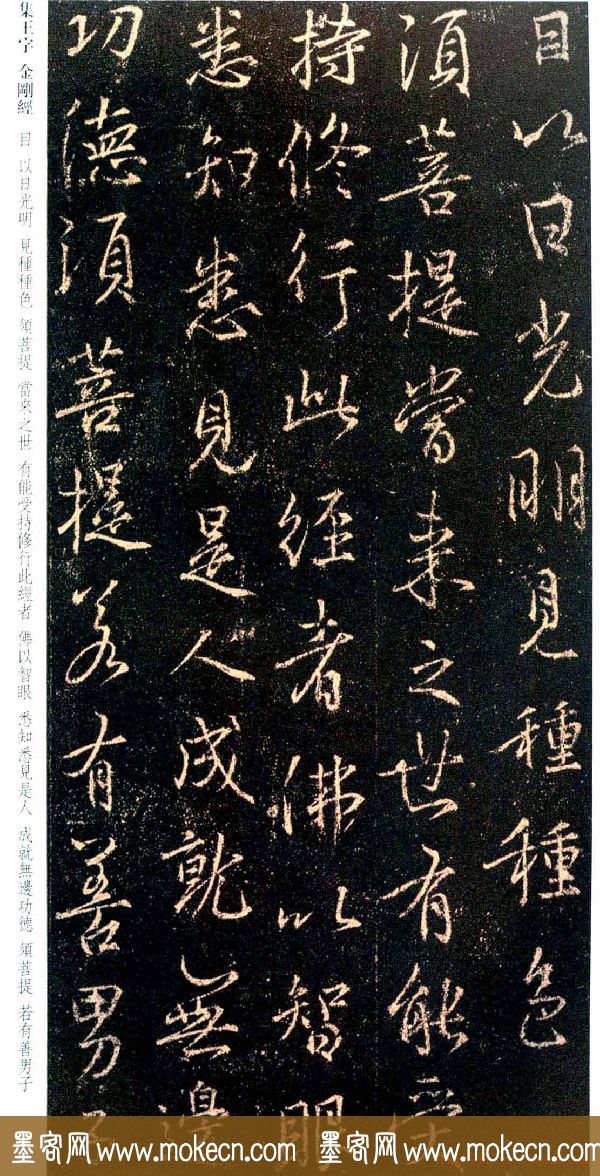 目以日光明見種種色
須菩提當來之世有能受
持修行此經者佛以智眼
悉知悉見是人成就無邊
功德須菩提若有善男子
集王字 金剛經 目 以日光明 見種種色 須菩提 當來之世 有能受持修行此經者 佛以智眼 悉知悉見是人 成就無邊功德 須菩提 若有善男子
墨客网 www.mokecn.com 墨客网 www.mokecn.com